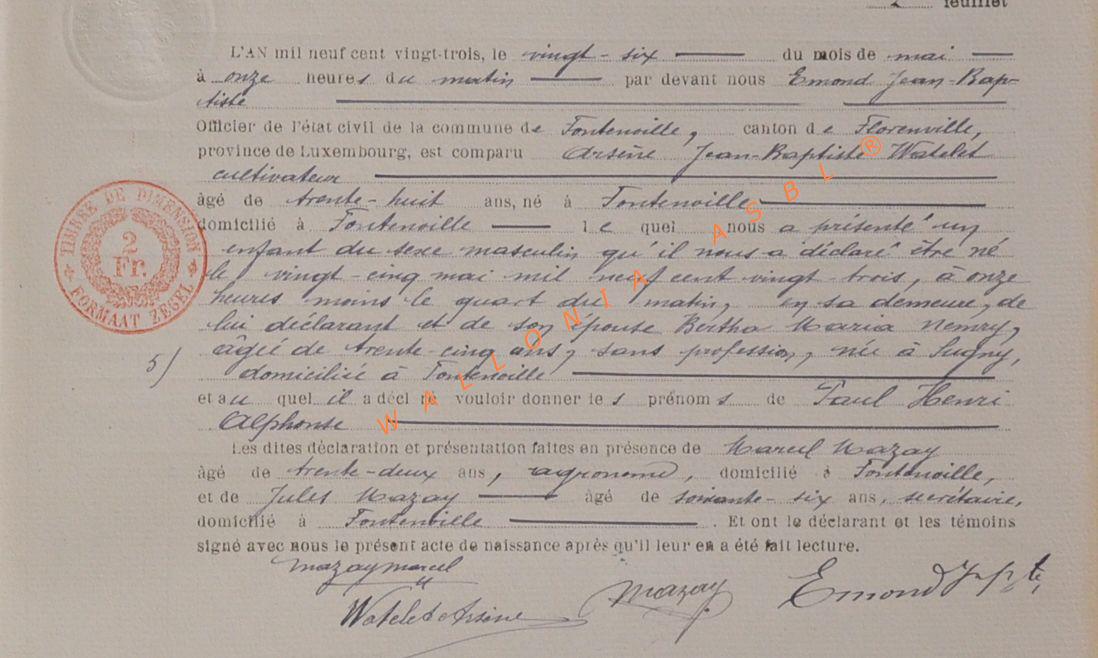 2 feuillet
L'AN mil neuf cent vingt-trois, le vingt-six du mois de mai
à onze heures du matin par devant nous Emond Jean-Bap-
tiste
Officier de l'état civil de la commune de Fontenoille, canton de Florenville,
province de Luxembourg, est comparu Arsène Jean-Baptiste Watelet
cultivateur
âgé de trente-huit ans, né à Fontenoille
domicilié à Fontenoille le quel nous a présenté un
enfant du sexe masculin qu'il nous a déclaré être né
le vingt-cinq mai mil neuf cent vingt-trois, à onze
heures moins le quart du matin, en sa demeure, de
lui déclarant et de son épouse Bertha Maria Nemry,
âgée de trente-cinq ans, sans profession, née à Sugny,
5/ domiciliée à Fontenoille
et au quel il a décl ré vouloir donner les prénoms de Paul Henri
Alphonse
Les dites déclaration et présentation faites en présence de Marcel Mazay
âgé de trente-deux ans, agronome, domicilié à Fontenoille,
et de Jules Mazay âgé de soixante-six ans, secrétaire,
domicilié à Fontenoille. Et ont le déclarant et les témoins
signé avec nous le présent acte de naissance après qu'il leur en a été fait lecture.
Mazay Marcel
Watelet Arsène
Mazay
Emond J Bpte
TIMBRE DE DIMENSION
2
Fr.
FORMAAT ZEGEL
WALLONIA ASBL ®